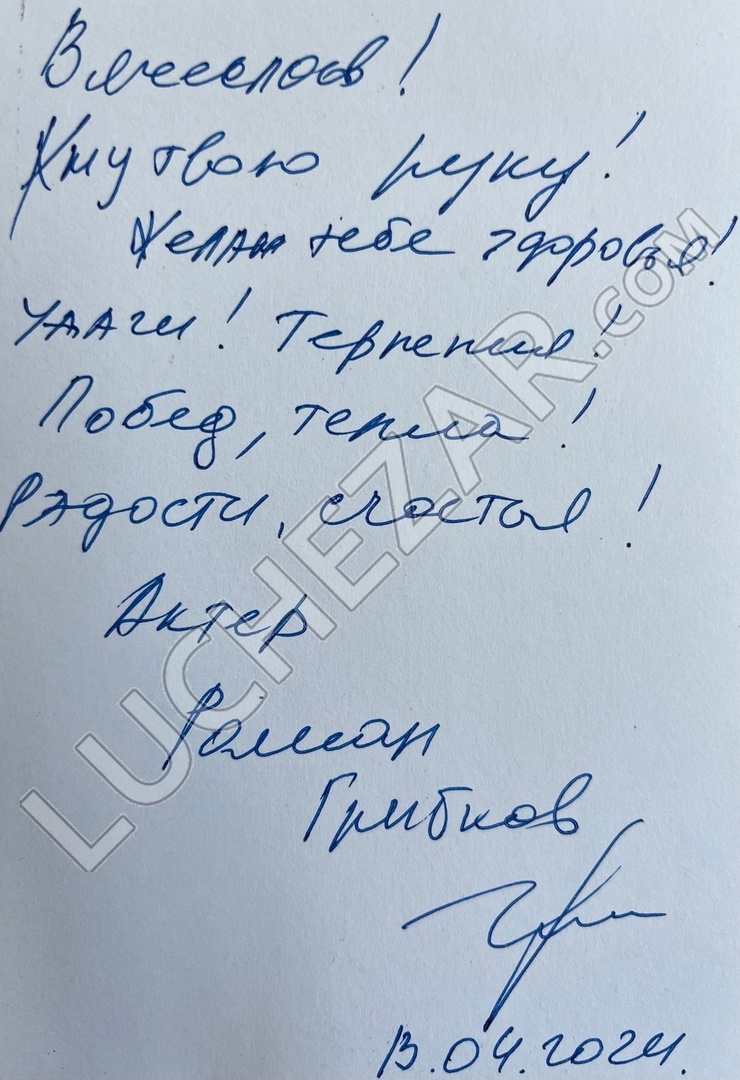 Вячеслав!
Жму твою руку!
Желаю тебе здоровья!
Удачи! Терпения!
Побед, тепла!
Радости, счастья!
Актер
Роман
Грибков
13.04.2024.
LUCHEZAR.COM